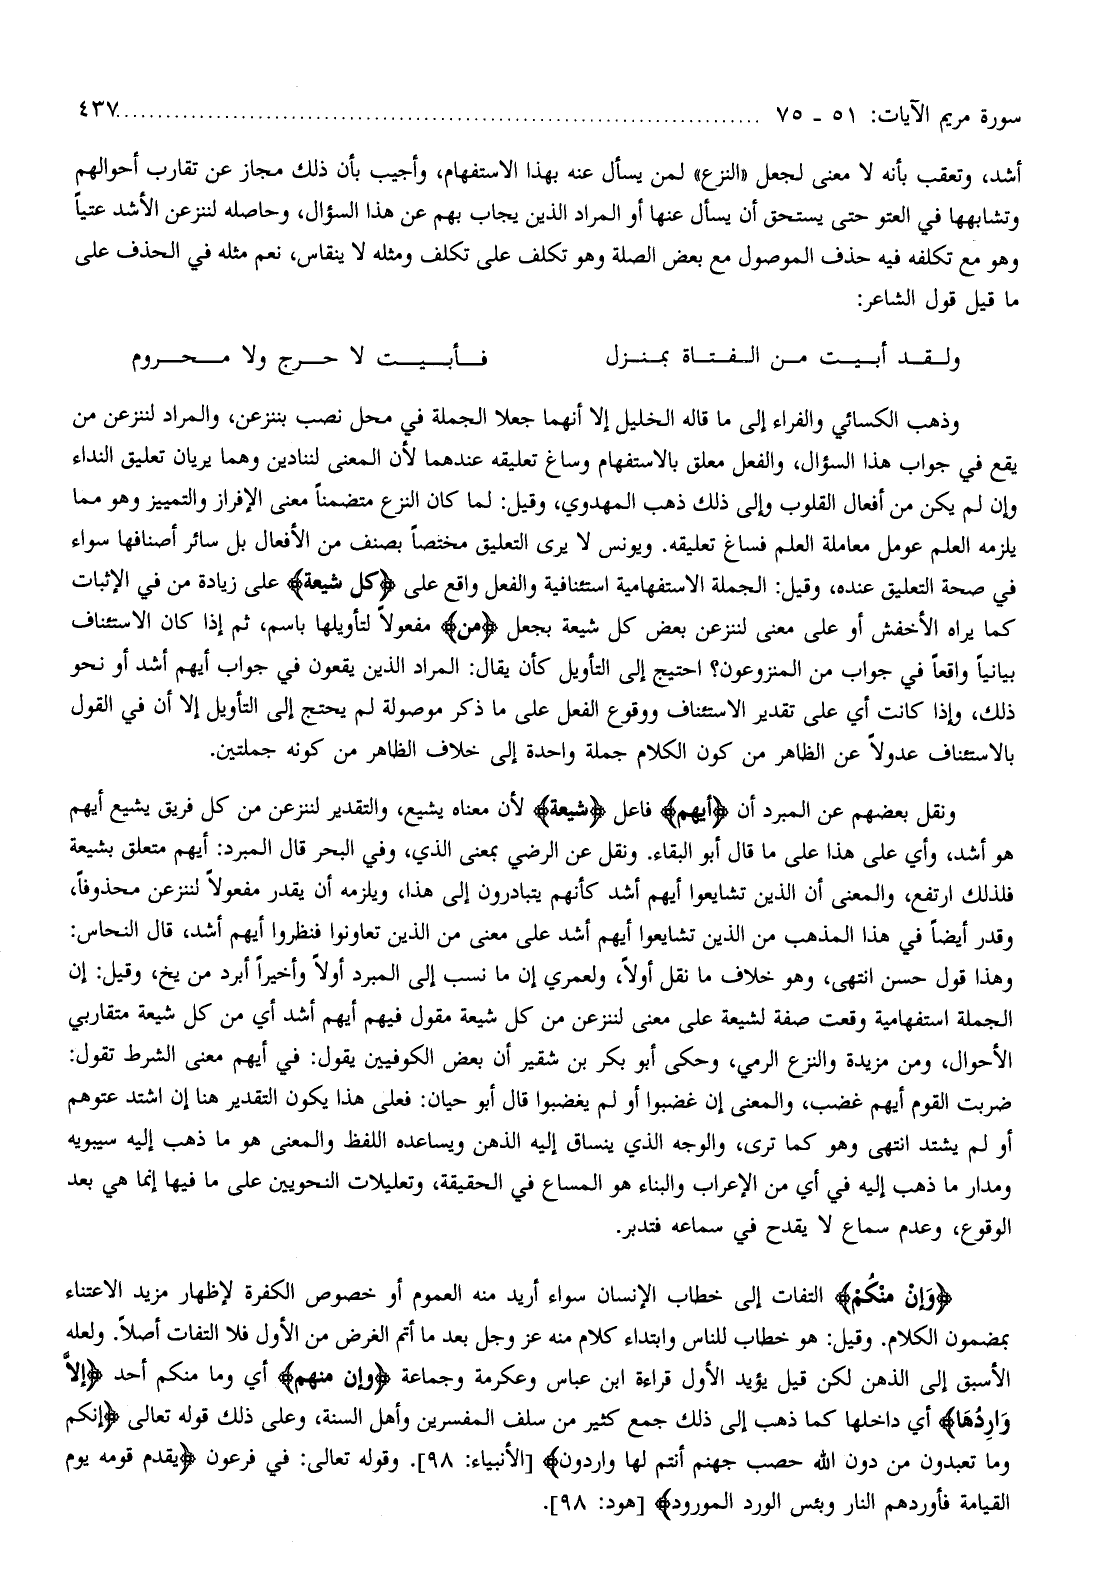 سورة مريم الآيات: ٥١ ـ ٧٥ ........................................................................ ٤٣٧
أشد، وتعقب بأنه لا معنى لجعل «النزع» لمن يسأل عنه بهذا الاستفهام، وأجيب بأن ذلك مجاز عن تقارب أحوالهم
وتشابهها في العتو حتى يستحق أن يسأل عنها أو المراد الذين يجاب بهم عن هذا السؤال، وحاصله لننزعن الأشد عتياً
وهو مع تكلفه فيه حذف الموصول مع بعض الصلة وهو تكلف على تكلف ومثله لا ينقاس، نعم مثله في الحذف على
ما قيل قول الشاعر:
ولـقـد أبـيـت مـن الـفـتـاة بمـنـزل فـأبـيـت لا حـرج ولا مـحـروم
وذهب الكسائي والفراء إلى ما قاله الخليل إلا أنهما جعلا الجملة في محل نصب بننزعن، والمراد لننزعن من
يقع في جواب هذا السؤال، والفعل معلق بالاستفهام وساغ تعليقه عندهما لأن المعنى لننادين وهما يريان تعليق النداء
وإن لم يكن من أفعال القلوب وإلى ذلك ذهب المهدوي، وقيل: لما كان النزع متضمناً معنى الإفراز والتمييز وهو مما
يلزمه العلم عومل معاملة العلم فساغ تعليقه. ويونس لا يرى التعليق مختصاً بصنف من الأفعال بل سائر أصنافها سواء
في صحة التعليق عنده، وقيل: الجملة الاستفهامية استئنافية والفعل واقع على ﴿كل شيعة﴾ على زيادة من في الإثبات
كما يراه الأخفش أو على معنى لننزعن بعض كل شيعة بجعل ﴿من﴾ مفعولاً لتأويلها باسم، ثم إذا كان الاستئناف
بيانياً واقعاً في جواب من المنزوعون؟ احتيج إلى التأويل كأن يقال: المراد الذين يقعون في جواب أيهم أشد أو نحو
ذلك، وإذا كانت أي على تقدير الاستئناف ووقوع الفعل على ما ذكر موصولة لم يحتج إلى التأويل إلا أن في القول
بالاستئناف عدولاً عن الظاهر من كون الكلام جملة واحدة إلى خلاف الظاهر من كونه جملتين.
ونقل بعضهم عن المبرد أن ﴿أيهم﴾ فاعل ﴿شيعة﴾ لأن معناه يشيع، والتقدير لننزعن من كل فريق يشيع أيهم
هو أشد، وأي على هذا على ما قال أبو البقاء. ونقل عن الرضي بمعنى الذي، وفي البحر قال المبرد: أيهم متعلق بشيعة
فلذلك ارتفع، والمعنى أن الذين تشايعوا أيهم أشد كأنهم يتبادرون إلى هذا، ويلزمه أن يقدر مفعولاً لننزعن محذوفاً،
وقدر أيضاً في هذا المذهب من الذين تشايعوا أيهم أشد على معنى من الذين تعاونوا فنظروا أيهم أشد، قال النحاس:
وهذا قول حسن انتهى، وهو خلاف ما نقل أولاً، ولعمري إن ما نسب إلى المبرد أولاً وأخيراً أبرد من يخ، وقيل: إن
الجملة استفهامية وقعت صفة لشيعة على معنى لننزعن من كل شيعة مقول فيهم أيهم أشد أي من كل شيعة متقاربي
الأحوال، ومن مزيدة والنزع الرمي، وحكى أبو بكر بن شقير أن بعض الكوفيين يقول: في أيهم معنى الشرط تقول:
ضربت القوم أيهم غضب، والمعنى إن غضبوا أو لم يغضبوا قال أبو حيان: فعلى هذا يكون التقدير هنا إن اشتد عتوهم
أو لم يشتد انتهى وهو كما ترى، والوجه الذي ينساق إليه الذهن ويساعده اللفظ والمعنى هو ما ذهب إليه سيبويه
ومدار ما ذهب إليه في أي من الإعراب والبناء هو المساع في الحقيقة، وتعليلات النحويين على ما فيها إنما هي بعد
الوقوع، وعدم سماع لا يقدح في سماعه فتدبر.
﴿وَإِنْ منْكُمْ﴾ التفات إلى خطاب الإنسان سواء أريد منه العموم أو خصوص الكفرة لإظهار مزيد الاعتناء
بمضمون الكلام. وقيل: هو خطاب للناس وابتداء كلام منه عز وجل بعد ما أتم الغرض من الأول فلا التفات أصلاً. ولعله
الأسبق إلى الذهن لكن قيل يؤيد الأول قراءة ابن عباس وعكرمة وجماعة ﴿وإن منهم﴾ أي وما منكم أحد ﴿إلاَّ
وَارِدُهَا﴾ أي داخلها كما ذهب إلى ذلك جمع كثير من سلف المفسرين وأهل السنة، وعلى ذلك قوله تعالى ﴿إنكم
وما تعبدون من دون الله حصب جهنم أنتم لها واردون﴾ [الأنبياء: ٩٨]. وقوله تعالى: في فرعون ﴿يقدم قومه يوم
القيامة فأوردهم النار وبئس الورد المورود﴾ [هود: ٩٨].